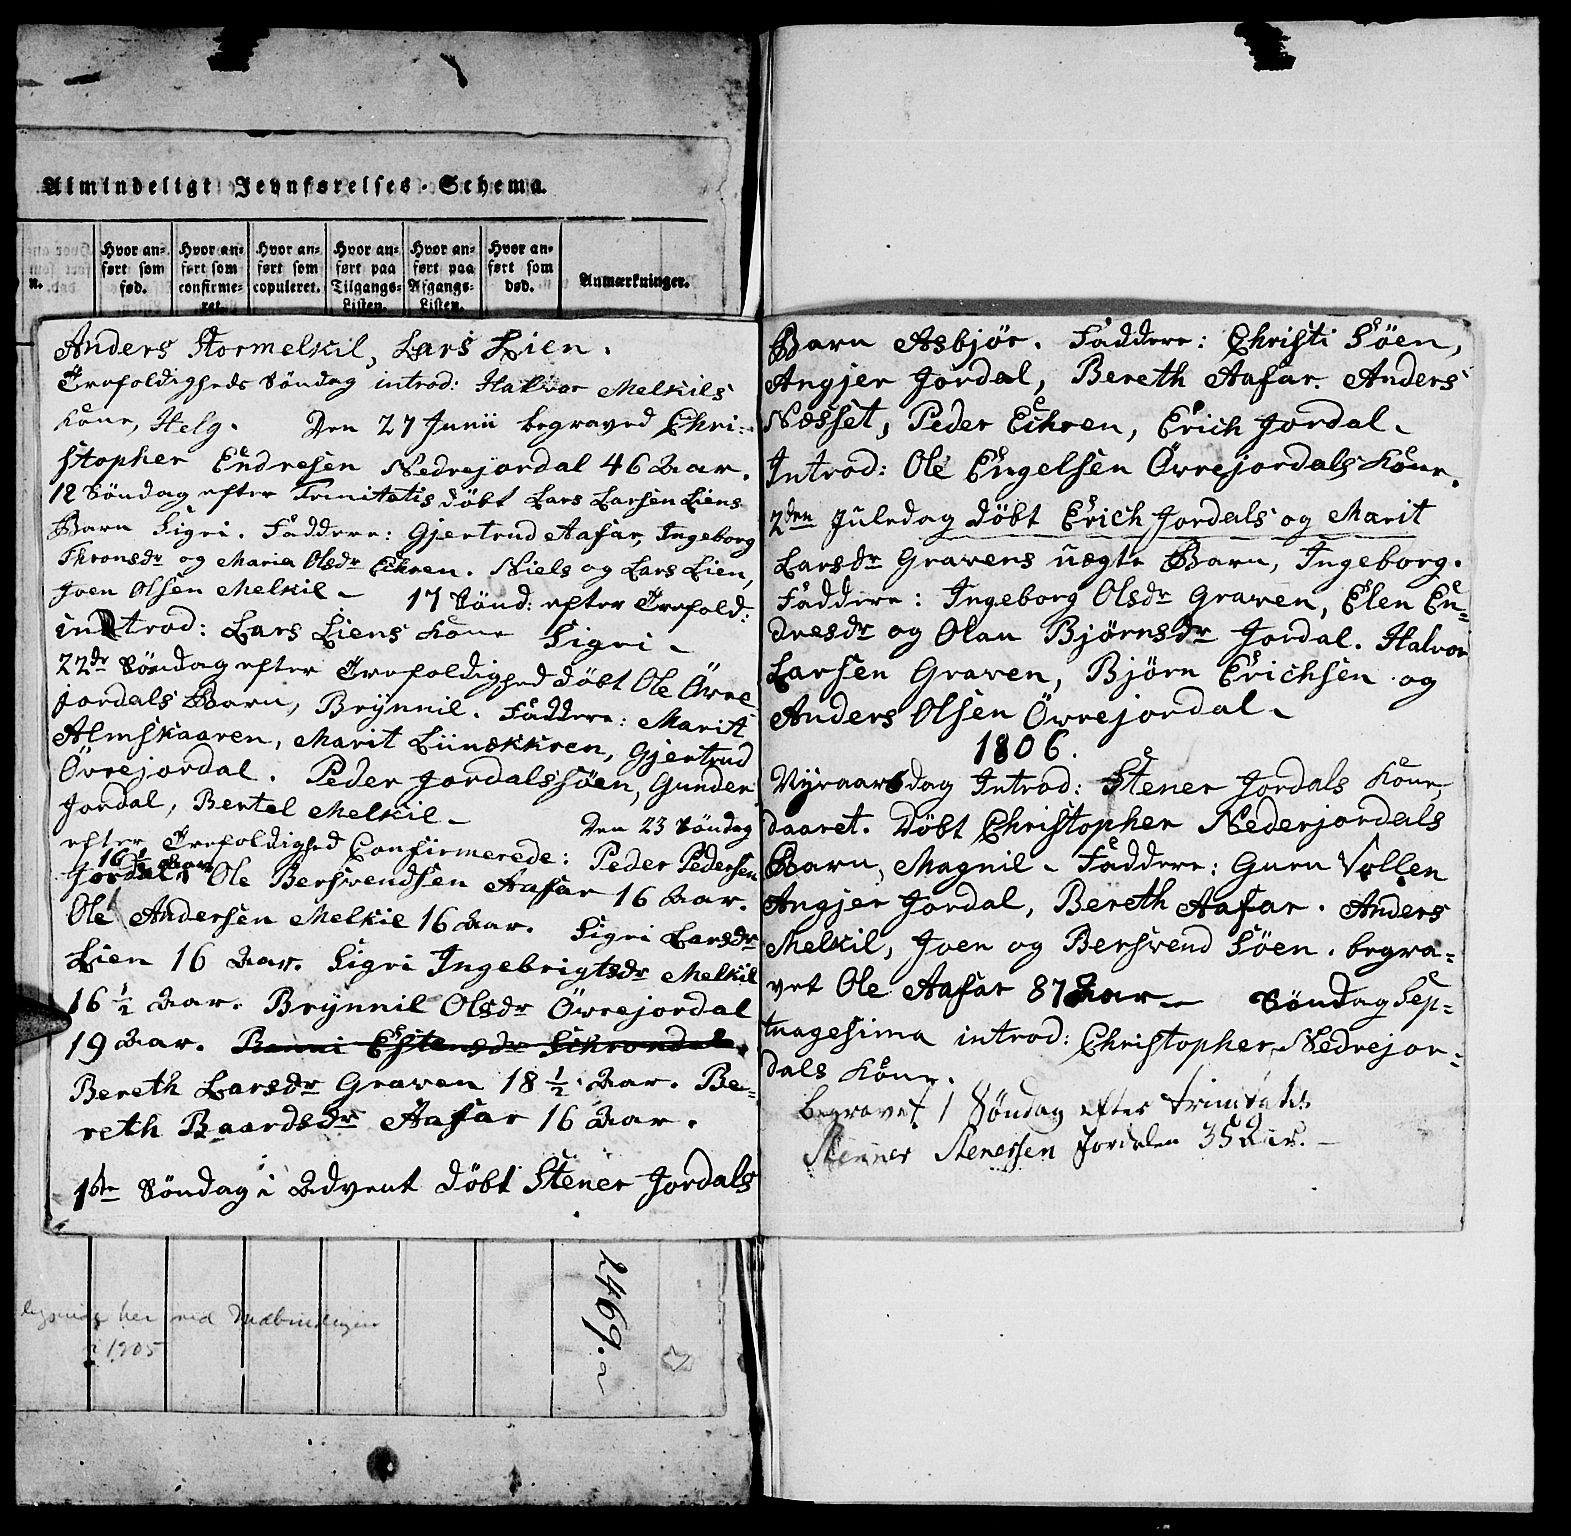 Almindeligt Jevnførelses-Schema.
n.
Hvor an-
ført som
fød.
Hvor an-
ført som
confirme-
ret.
Hvor an-
ført som
copuleret.
Hvor an-
ført paa
Tilgangs-
Listen.
Hvor an-
ført paa
Afgangs-
Listen.
Hvor an-
ført som
død.
Anmærkninger.
Anders Stormelkil, Lars Lien.
Trefoldigheds Söndag introd: Halvor Melkils
Kone, Helg. Den 27 Junii begraved Chri-
stopher Endresen Nedrejordal 46 Aar.
12 Söndag efter Trinitatis döbt Lars Larsen Liens
Barn Sigri. Faddere: Gjertrud Aafar, Ingeborg
Thronsdr og Maria Olsdr Eikren. Niels og Lars Lien,
Joen Olsen Melkil – 17 Sönd: efter Trefold:
introd: Lars Liens Kone Sigri –
22dr Söndag efter Trefoldighed döbt Ole Övre
jordals Barn, Brÿnnil. Faddere: Marit
Almskaaren, Marit Liinækkren, Gjertrud
Övrejordal. Peder Jordalssöen, Gunder
Jordal, Bertel Melkil – Den 23 Söndag
efter Trefoldighed Confirmerede: Peder Pedersen
16 ½ Aar
Jordal, Ole Bersvendsen Aafar 16 Aar.
Ole Andersen Melkil 16 Aar. Sigri Larsdr
Lien 16 Aar. Sigri Ingebrigtsdr Melkil
16 ½ Aar. Brÿnnil Olsdr Övrejordal
19 Aar. Ranni Estensdr Schrondal.
Bereth Larsdr Graven 18 ½ Aar. Be-
reth Baardsdr Aafar 16 Aar.
1ste Söndag i Advent döbt Stener Jordals
Barn Asbjör. Faddere: Christi Söen,
Angjer Jordal, Bereth Aafar. Anders
Næsset, Peder Eikren, Erich Jordal –
Introd: Ole Engelsen Övrejordals Kone.
2den Juledag döbt Erich Jordals og Marit
Larsdr Gravens uægte Barn, Ingeborg.
Faddere: Ingeborg Olsdr Graven, Elen En-
dresdr og Olau Björnsdr Jordal. Halvor
Larsen Graven, Björn Erichsen og
Anders Olsen Övrejordal –
1806.
Nyraarsdag Introd: Stener Jordals Kone,
daaret. Döbt Christopher Nederjordals
Barn, Magnil – Faddere: Guru Vollen
Angjer Jordal, Bereth Aafar. Anders
Melkil, Joen og Bersvend Söen. begra-
vet Ole Aafar 87 Aar – Söndag Sep-
tuagesima introd: Christopher Nedrejor-
dals Kone.
begravet 1 Söndag efter Trinitatis
Stenner Stenersen Jordalen 35 Aar. –
her ved Indbindingen
1905
2469.